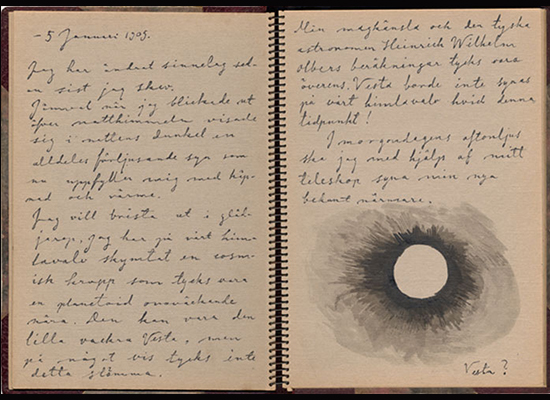 - 5 Januari 1909.
Jag har ändrat sinnelag sed-
an sist jag skrev.
Jämväl när jag blickade ut
över natthimmeln visade
sig i nattens dunkel en
alldeles förtjusande syn som
nu uppfyller mig med häp-
nad och värme.
Jag vill brista ut i gläd-
jerop, jag har på vårt him-
lavalv skymtat en cosm-
isk kropp som tycks vara
en planetoid ovavickande
nära. Den kan vara den
lilla vackra Vesta, men
på något vis tycks inte
detta stämma.
Min magkänsla och den tyska
astronomen Heinrich Wilhelm
Olbers beräkningar tycks vara
överens. Vesta borde inte synas
på vårt himlavalv hvid denna
tidpunkt!
I morgondagens aftonljus
ska jag med hjälp af mitt
teleskop syna min nya
bekant närmare.
Vesta?